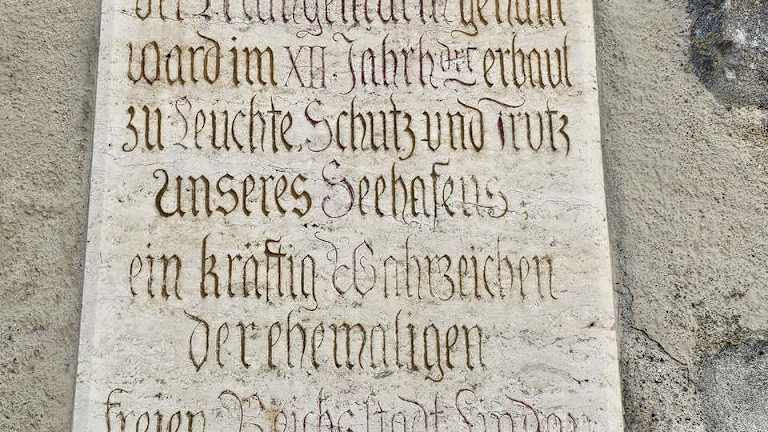 der Mangenturm genannt
ward im XII. Jahrhdrt erbaut
zu Leuchte, Schutz und Trutz
unseres Seehafens,
ein kräftig Wahrzeichen
der ehemaligen
freien Reichsstadt Lindau